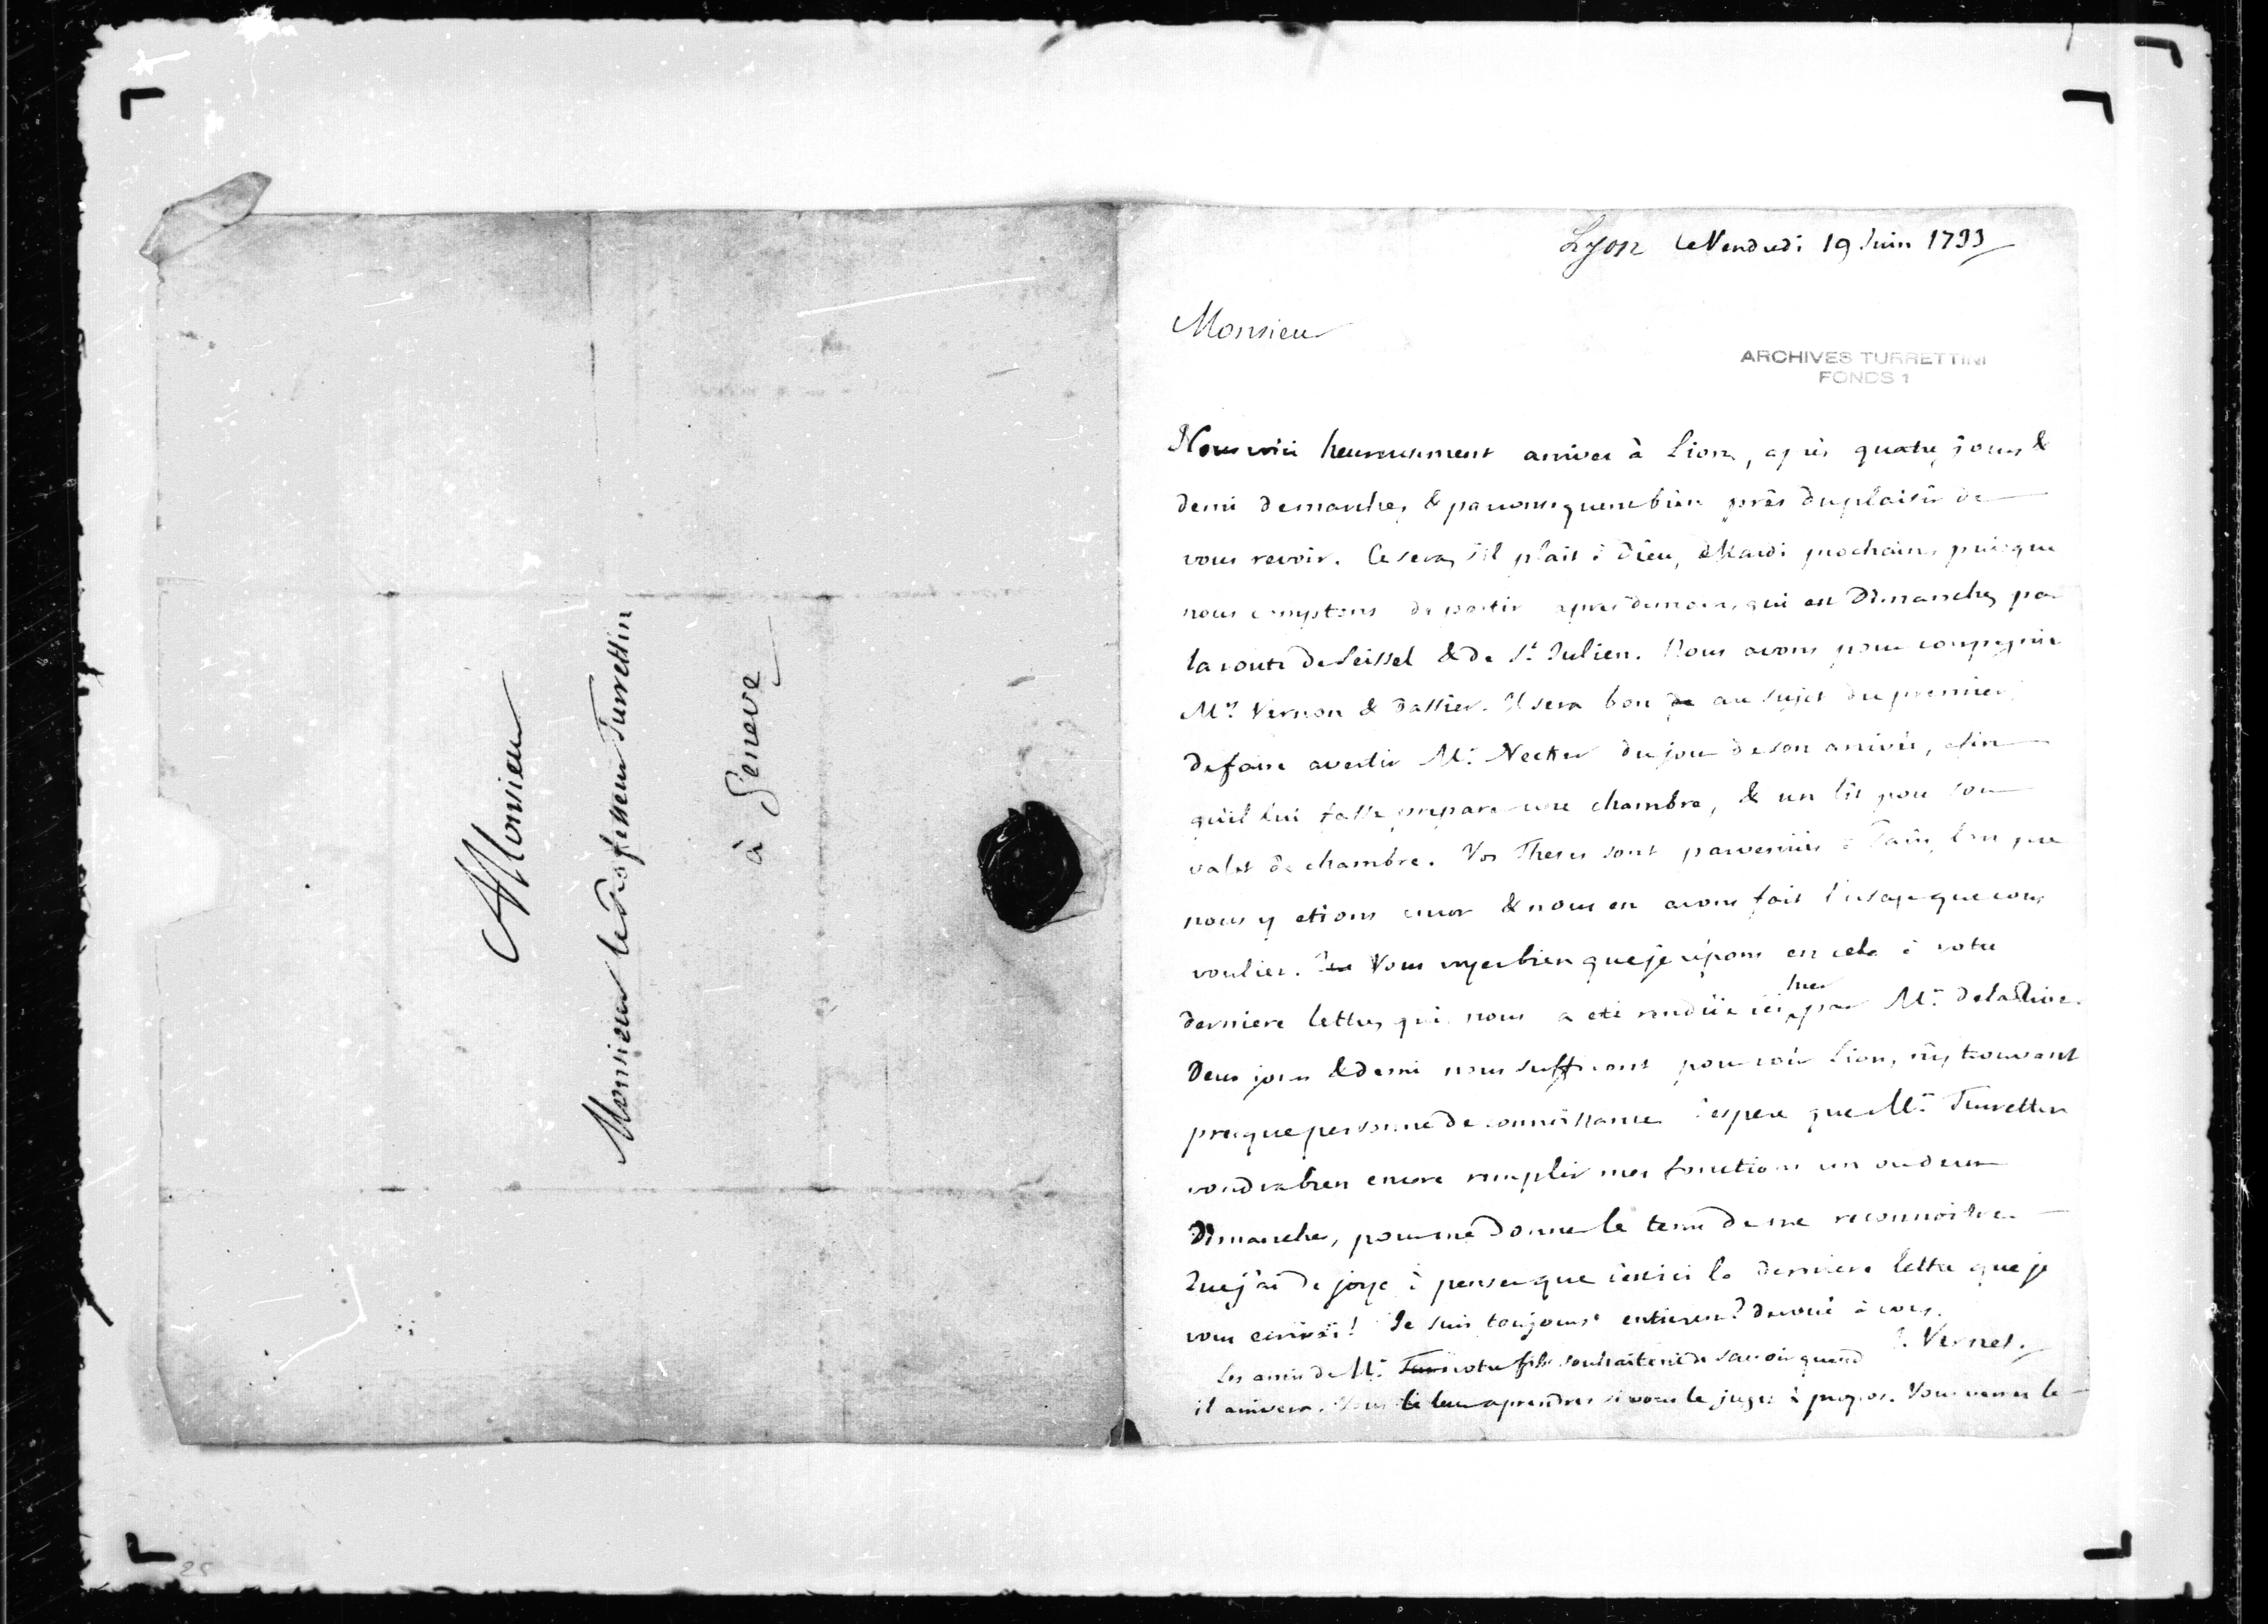 A Monsieur
Monsieur le Professeur Turrettin
à Geneve
Lyon le Vendredi 19 Juin 1733
Monsieur
ARCHIVES TURRETTINI
FONDS 1
Nous voici heureusement arrivez à Lion, après quatre jours &
demi de marche, & par consequent bien près du plaisir de
vous revoir. Ce sera, s'il plait à Dieu, Mardi prochain, puisque
nous comptons de partir après demain, qui est Dimanche, par
la route de Seissel & de St. Julien. Nous avons pour compagnie
Mrs. Vernon & Dassier. Il sera bon de au sujet du premier,
de faire avertir Mr. Necker du jour de son arrivée, afin
qu'il lui fasse preparer une chambre, & un lit pour son
valet de chambre. Vos Theses sont parvenües à Paris, lors que
nous y etions encor & nous en avons fait l'usage que vous
vouliez. Vous voyez bien que je répons en cela à votre
derniere lettre, qui nous a eté rendüe ici hier par Mr. De la Rive.
Deux jours & demi nous suffiront pour voir Lion, n'y trouvant
presque personne de connoissance. J'espere que Mr. Turrettin
voudra bien encore remplir mes fonctions un ou deux
Dimanches, pour me donner le tems de me reconnoitre.
Que j'ai de joye à penser que c'est ici la derniere lettre que je
vous ecrirai! Je suis toujours entierem.t devoué à vous.
J. Vernet.
Les amis de Mr. Tur votre fils souhaitent de savoir quand
il arrivera. Vous le leur aprendrez si vous le jugez à propos. Vous verrez le
25